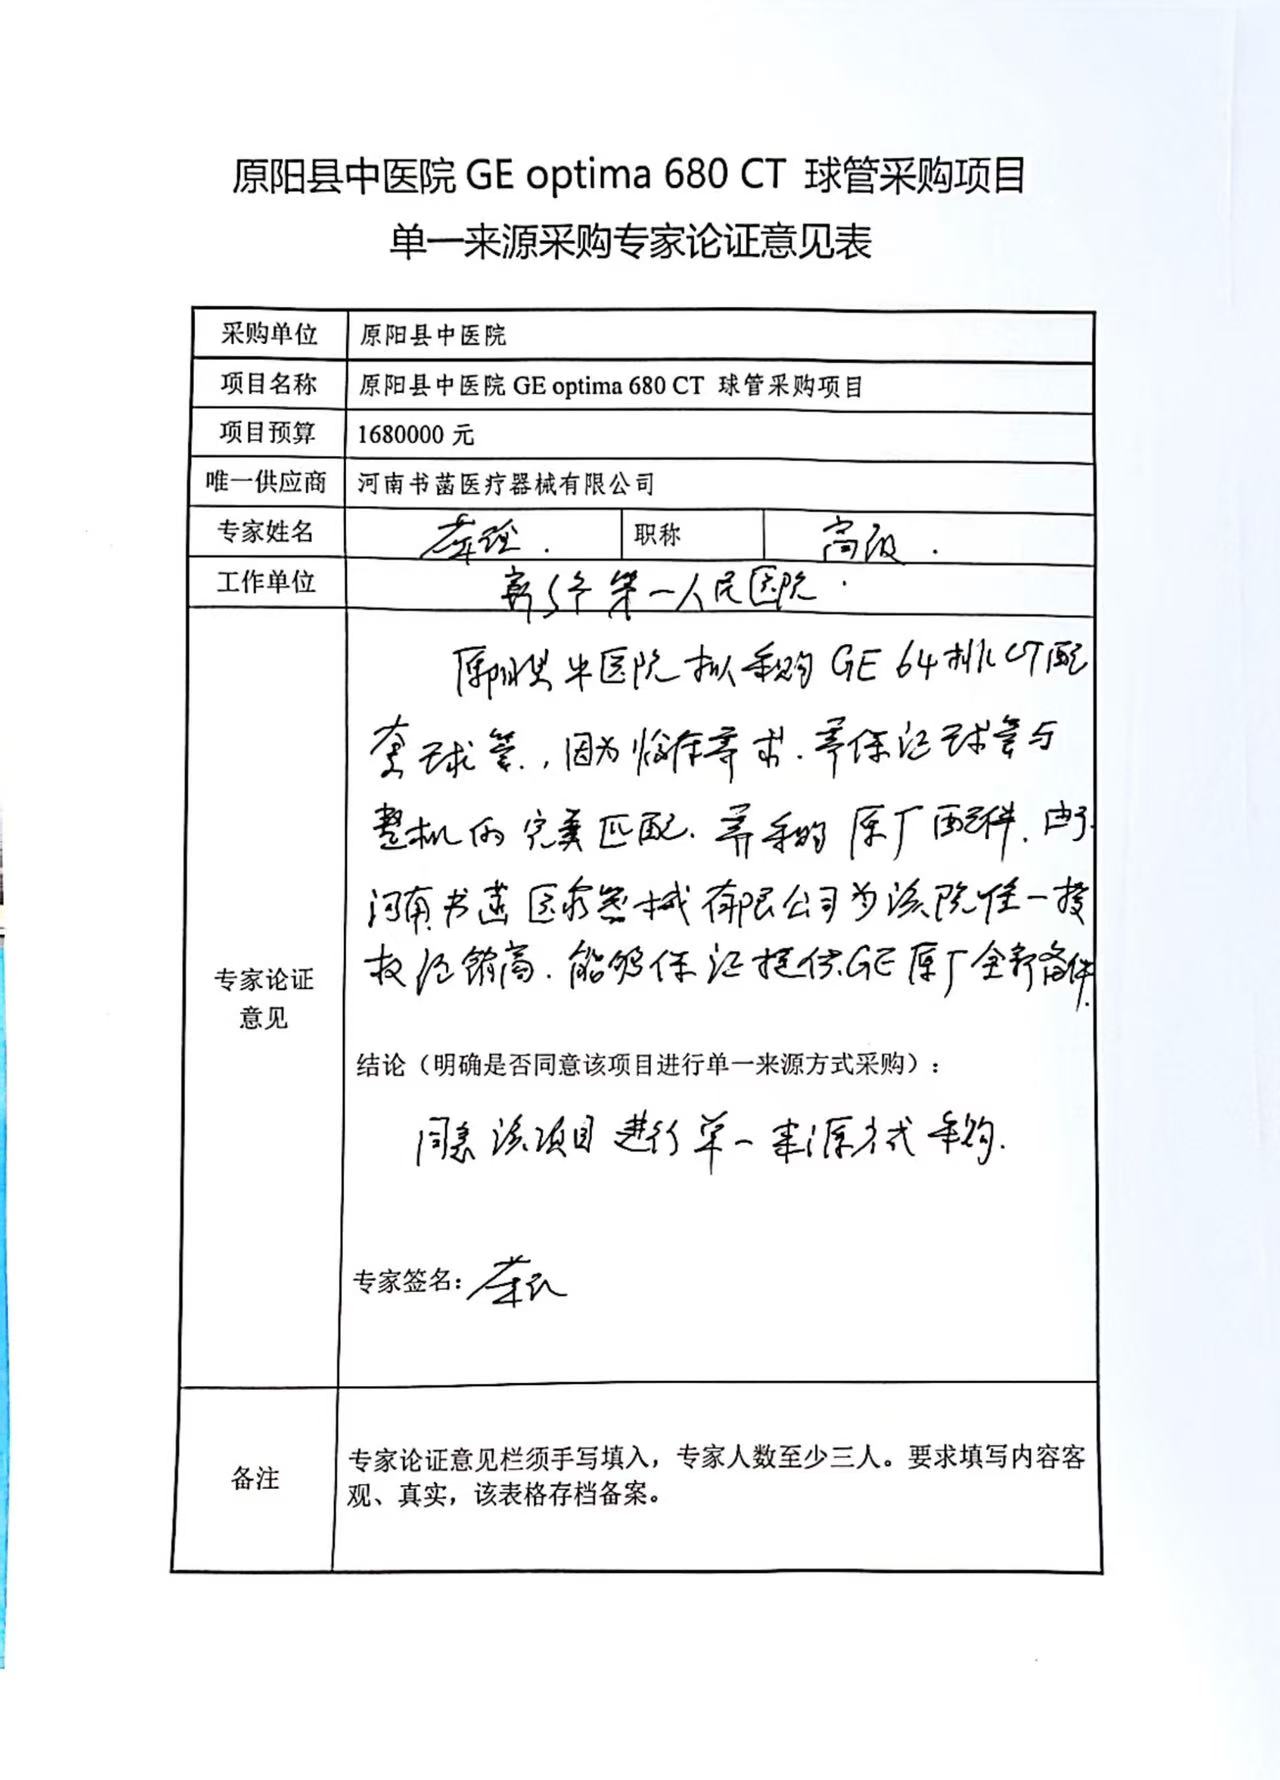 原阳县中医院 GE optima 680 CT 球管采购项目
单一来源采购专家论证意见表
采购单位 原阳县中医院
项目名称 原阳县中医院 GE optima 680 CT 球管采购项目
项目预算 1680000 元
唯一供应商 河南书菡医疗器械有限公司
专家姓名 职称 高级.
工作单位 第一人民医院.
原阳县中医院拟采购GE 64排CT配
套球管.,因为临床需求.需保证球管与
整机的完美匹配.需采购原厂配件.由于
河南书菡医疗器械有限公司为该院唯一授
权经销商.能够保证提供GE原厂全新备件.
专家论证
意见
结论（明确是否同意该项目进行单一来源方式采购）:
同意该项目进行单一来源方式采购.
专家签名:
备注
专家论证意见栏须手写填入，专家人数至少三人。要求填写内容客
观、真实，该表格存档备案。